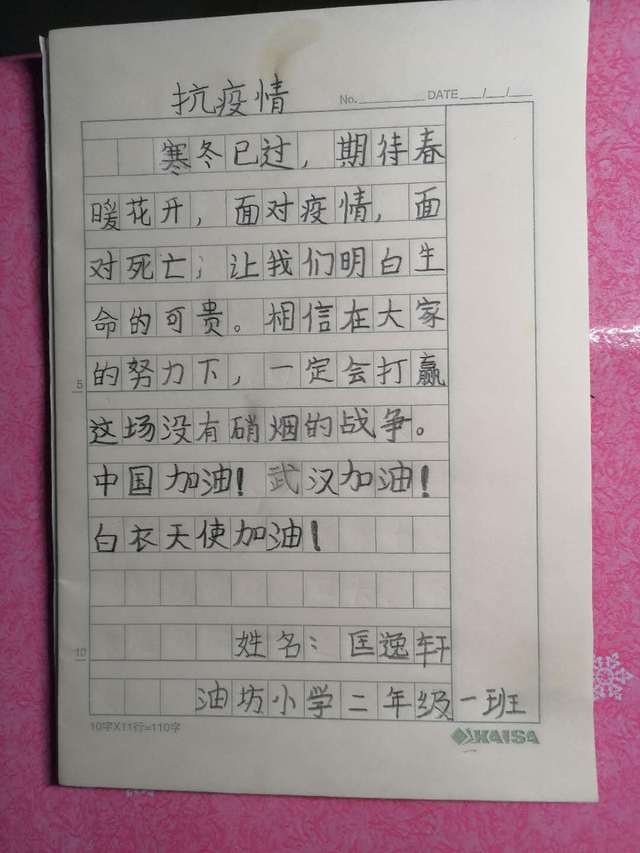 抗疫情
No. DATE / /
寒冬已过，期待春
暖花开，面对疫情，面
对死亡；让我们明白生
命的可贵。相信在大家
5
的努力下，一定会打赢
这场没有硝烟的战争。
中国加油！武汉加油！
白衣天使加油！
10
姓名：匡逸轩
油坊小学二年级一班
10字X11行=110字
KAISA